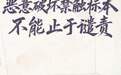 恶意破坏禁触标本
不能止于谴责